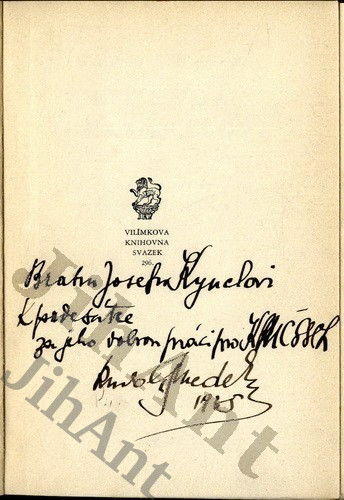 VILÍMKOVA
KNIHOVNA
SVAZEK
296.
Bratru Josefu Kynclovi
k padesátce
za jeho dobrou práci pro
Rudolf Medek
1925
JihAnt
JihAnt